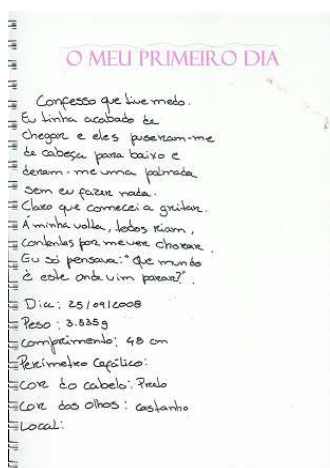 O MEU PRIMEIRO DIA
Confesso que tive medo.
Eu tinha acabado de
chegar e eles puseram-me
de cabeça para baixo e
deram-me uma palmada
sem eu fazer nada.
Claro que comecei a gritar.
À minha volta, todos riam,
contentes por me ver chorar.
Eu só pensava: "Que mundo
é este onde vim parar?".
Dia: 25/09/2008
Peso: 3.535g
Comprimento: 48 cm
Perímetro Cefálico:
Cor do cabelo: Preto
Cor dos olhos: Castanho
Local: